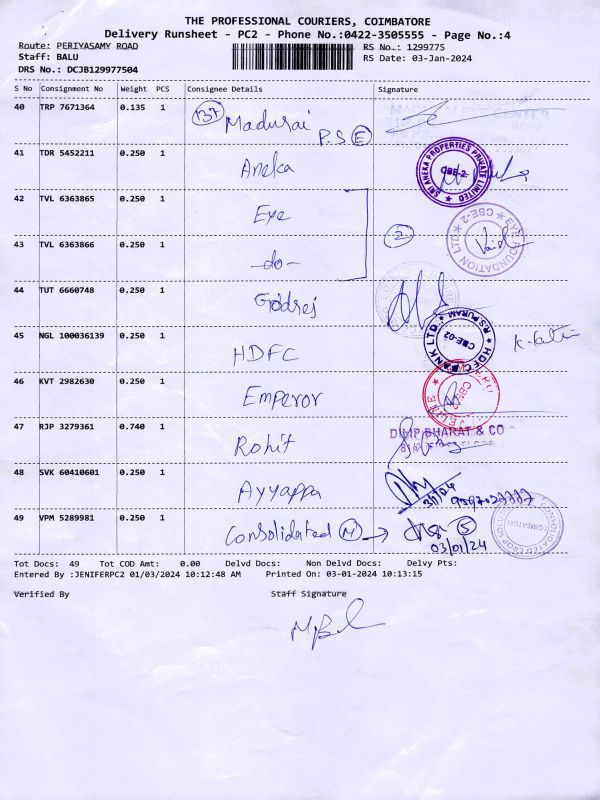 THE PROFESSIONAL COURIERS, COIMBATORE
Delivery Runsheet - PC2 - Phone No.:0422-3505555 - Page No.:4
Route: PERIYASAMY ROAD RS No.: 1299775
Staff: BALU RS Date: 03-Jan-2024
DRS No.: DCJB129977504
S No Consignment No Weight PCS Consignee Details Signature
40 TRP 7671364 0.135 1 137 Madurai P.S E
41 TDR 5452211 0.250 1 Aneka
SRI ANEKA PROPERTIES PRIVATE LIMITED CBE-2.
42 TVL 6363865 0.250 1 Eye
2
EYE FOUNDATION LTD. CBE-2
43 TVL 6363866 0.250 1 -do-
44 TUT 6660748 0.250 1 Godrej
45 NGL 100036139 0.250 1 HDFC
HDFC BANK LTD. R.S.PURAM CBE-02
46 KVT 2982630 0.250 1 Emperor
CBE-2
47 RJP 3279361 0.740 1 Rohit
DILIP BHARAT & CO
48 SVK 60410601 0.250 1 Ayyappa
49 VPM 5289981 0.250 1 Consolidated M → 5
03/01/24
COIMBATORE
Tot Docs: 49 Tot COD Amt: 0.00 Delvd Docs: Non Delvd Docs: Delvy Pts:
Entered By :JENIFERPC2 01/03/2024 10:12:48 AM Printed On: 03-01-2024 10:13:15
Verified By Staff Signature